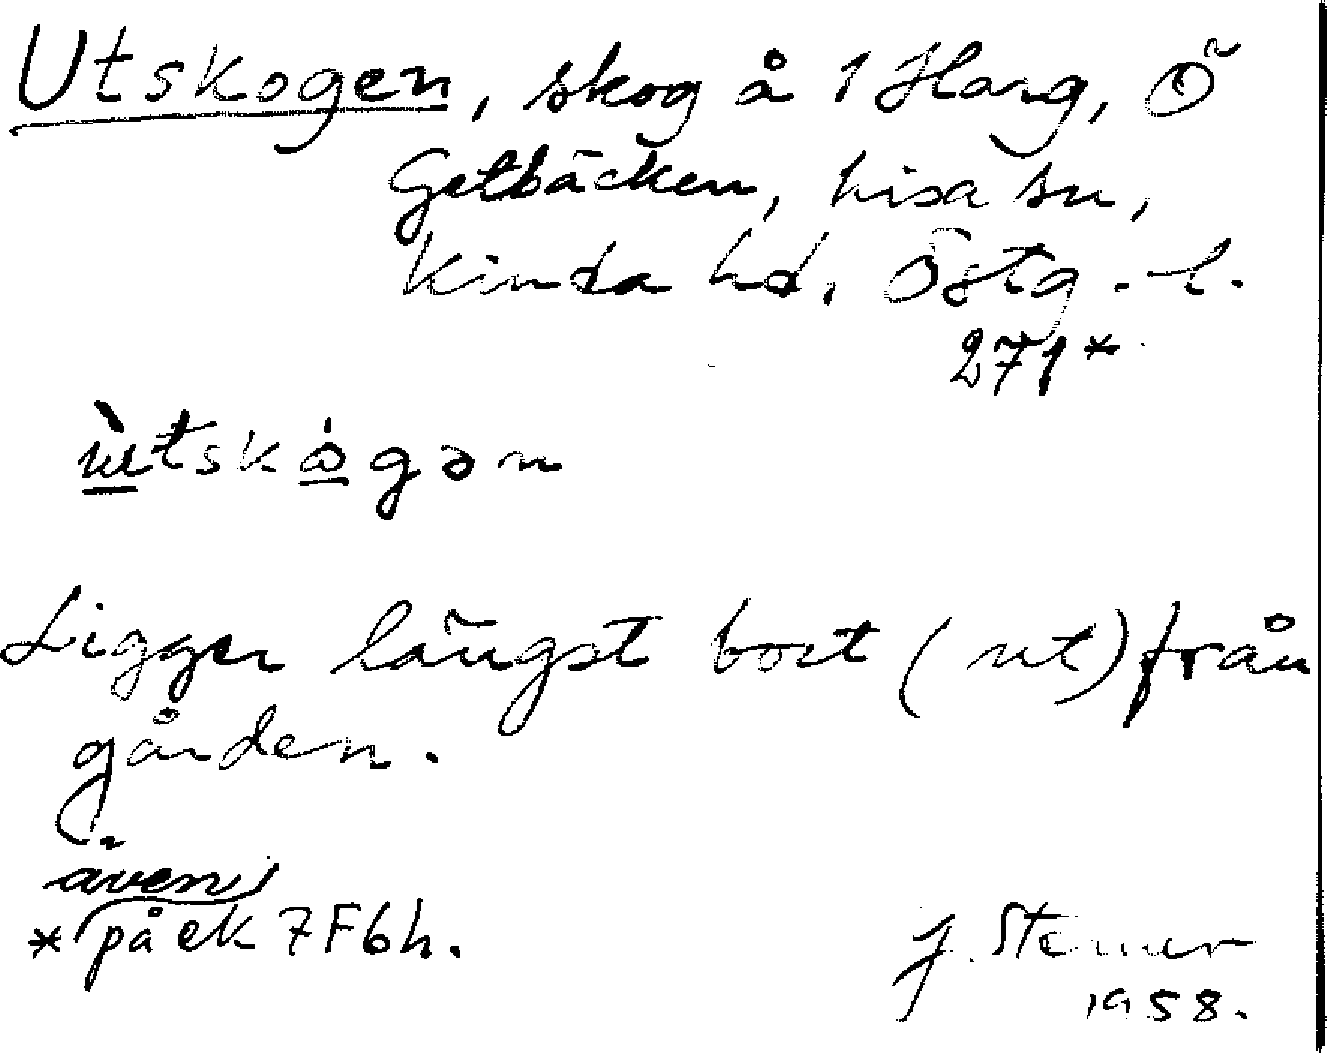 Utskogen, skog å 1 Harg, Ö
Getbäcken, hisa sn,
Kinda hd, Östg.-l.
271*
ù̲tskȯ̲gən
Ligger längst bort (ut) från
gården.
även
* på ek 7F6h.
J. Sterner
1958.